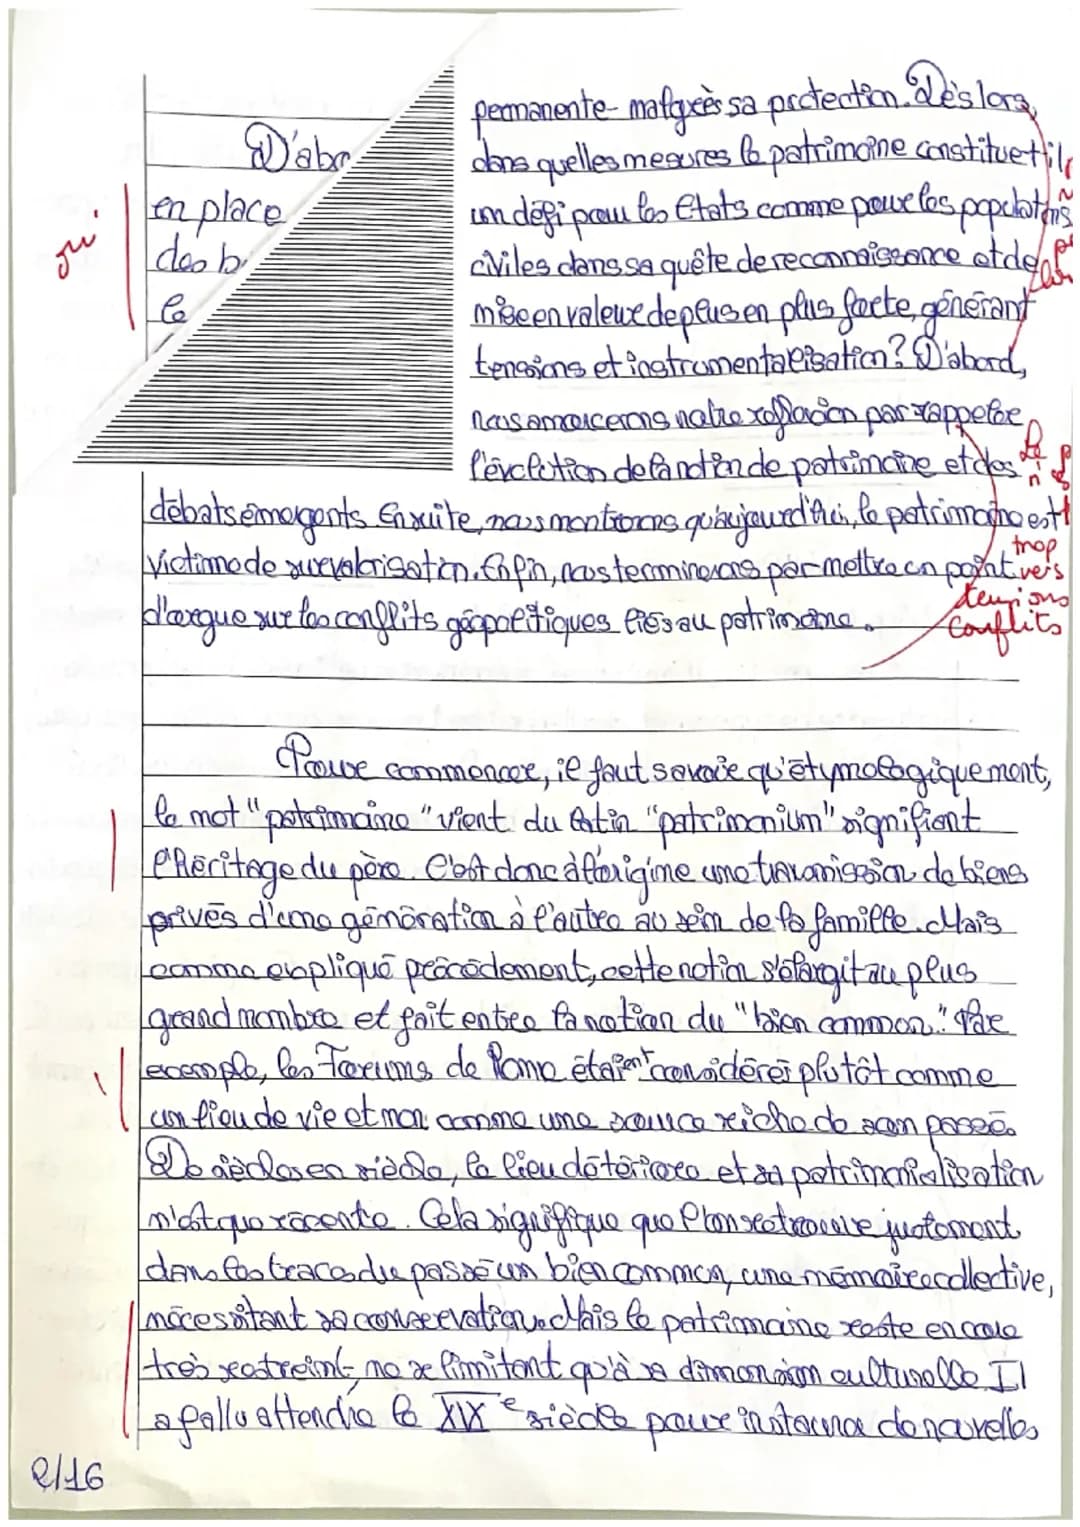 permanente malgrès sa protection. Dès lors,
dans quelles mesures le patrimoine constituet il
un défi pour les Etats comme pour les populations
civiles dans sa quête de reconnaissance et de
mise en valeur de plus en plus forte, générant
tensions et instrumentalisation? D'abord,
nous amorcerons notre réflexion par rappeler
l'évolution de la notion de patrimoine et des
D'abo
en place
des b
le
oui
débats émergents. Ensuite, nous montrerons qu'aujourd'hui, le patrimoine est
victime de survalorisation. Enfin, nous terminerons par mettre en point
d'orgue sur les conflits géopolitiques liés au patrimoine.
trop
vers
tensions
conflits
Pour commencer, il faut savoir qu'étymologiquement,
le mot "patrimoine" vient du latin "patrimonium" signifiant
l'héritage du père. C'est donc à l'origine une transmission de biens
privés d'une génération à l'autre au sein de la famille. Mais
comme expliqué précédement, cette notion s'élargit au plus
grand nombre et fait entrer la notion du "bien commun." Par
exemple, les Forums de Rome étaient considérés plutôt comme
un lieu de vie et non comme une source riche de son passé.
De siècles en siècle, le lieu détériore et sa patrimonialisation
n'est que récente. Cela signifique que l'on retrouve justement
dans les traces du passé un bien commun, une mémoire collective,
nécessitant sa conservation. Mais le patrimoine reste encore
très restreint, ne se limitant qu'à sa dimension culturelle. Il
a fallu attendre le XIXe siècle pour instaurer de nouvelles
2/16